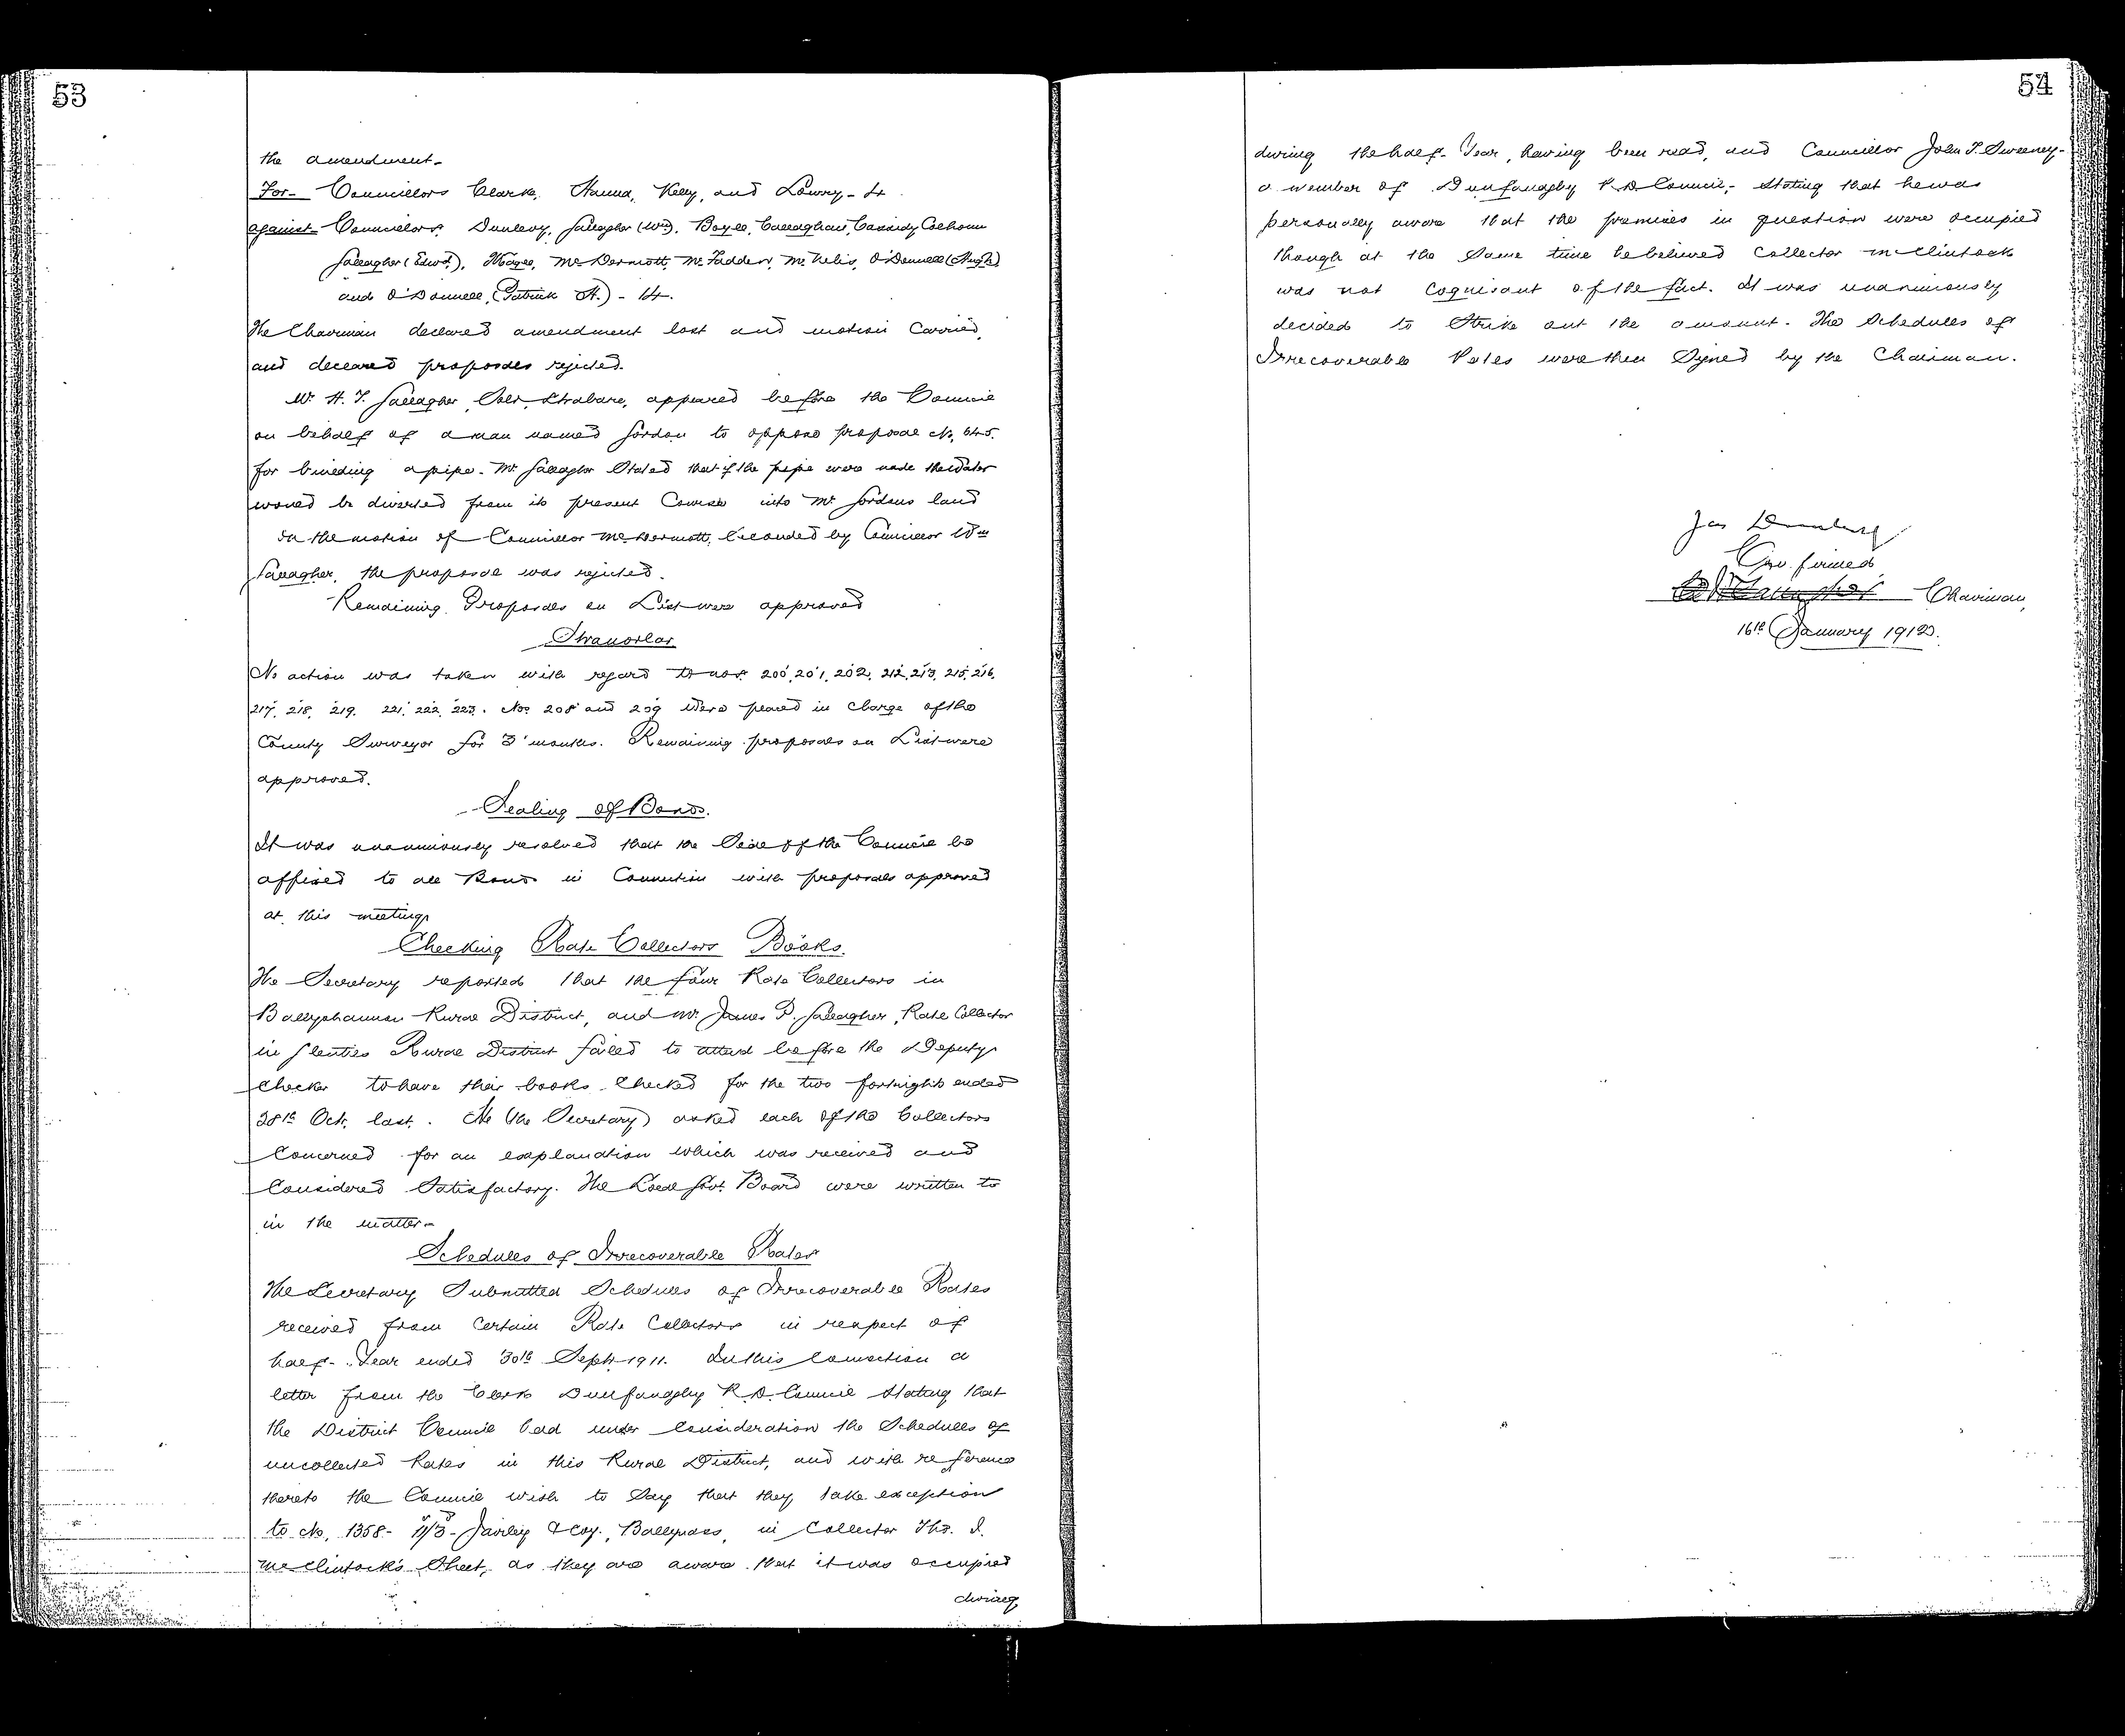 53
the amendment-
For- Councillors Clark, Hanna, Kelly, and Lowry - 4
against- Councillors, Dunlevy, Gallagher (Wm), Boyle, Callaghan, Cassidy, Colhoun
Gallagher (Edwd.), Magee, McDermott, McFadden, McNelis, O'Donnell (Hugh)
and O'Donnell, (Patrick H.) - 14.
The Chairman declared amendment lost and motion carried,
and declared proposals rejected.
Mr. H. T. Gallagher, Solr, Strabane, appeared before the Council
on behalf of a man named Gordon to oppose proposal No. 645.
for building a pipe. Mr Gallagher stated that if the pipe were made the water
would be diverted from its present course into Mr Gordons land
On the motion of Councillor McDermott, seconded by Councillor Wm
Gallagher, the proposal was rejected.
Remaining Proposals on List were approved
Stranorlar
No action was taken with regard to nos. 200, 201, 202, 212, 213, 215, 216,
217, 218, 219. 221, 222, 223. Nos 208 and 209 were placed in charge of the
County Surveyor for 3 months. Remaining proposals on List were
approved.
Sealing of Bonds.
It was unanimously resolved that the Seal of the Council be
affixed to all Bonds in Connection with proposals approved
at this meeting
Checking Rate Collectors Books.
The Secretary reported that the four Rate Collectors in
Ballyshannon Rural District, and Mr. James P. Gallagher, Rate Collector
in Glenties Rural District failed to attend before the Deputy
Checker to have their books checked for the two fortnights ended
28th Oct. last. He (the Secretary) asked each of the Collectors
Concerned for an explanation which was received and
Considered Satisfactory. The Local Govt. Board were written to
in the matter-
Schedules of Irrecoverable Rates
The Secretary Submitted Schedules of Irrecoverable Rates
received from certain Rate Collectors in respect of
half-Year ended 30th Sept 1911. In this connection a
letter from the Clerk Dunfanaghy R.D. Council stating that
the District Council had under consideration the Schedules of
uncollected Rates in this Rural District, and with reference
thereto the Council wish to say that they take exception
to No. 1358- Fairley & Coy, Ballymass, in Collector Thos. J.
McClintock's Sheet, as they are aware that it was occupied
during
54
during the half-Year, having been read, and Councillor John P. Sweeney-
a member of Dunfanaghy R.D. Council,- stating that he was
personally aware that the premises in question were occupied
though at the same time he believed Collector McClintock
was not cognisant of the fact. It was unanimously
decided to strike out the amount. The Schedules of
Irrecoverable Rates were then Signed by the Chairman.
Jas Dunlevy
Confirmed
Chairman,
16th January 1912.